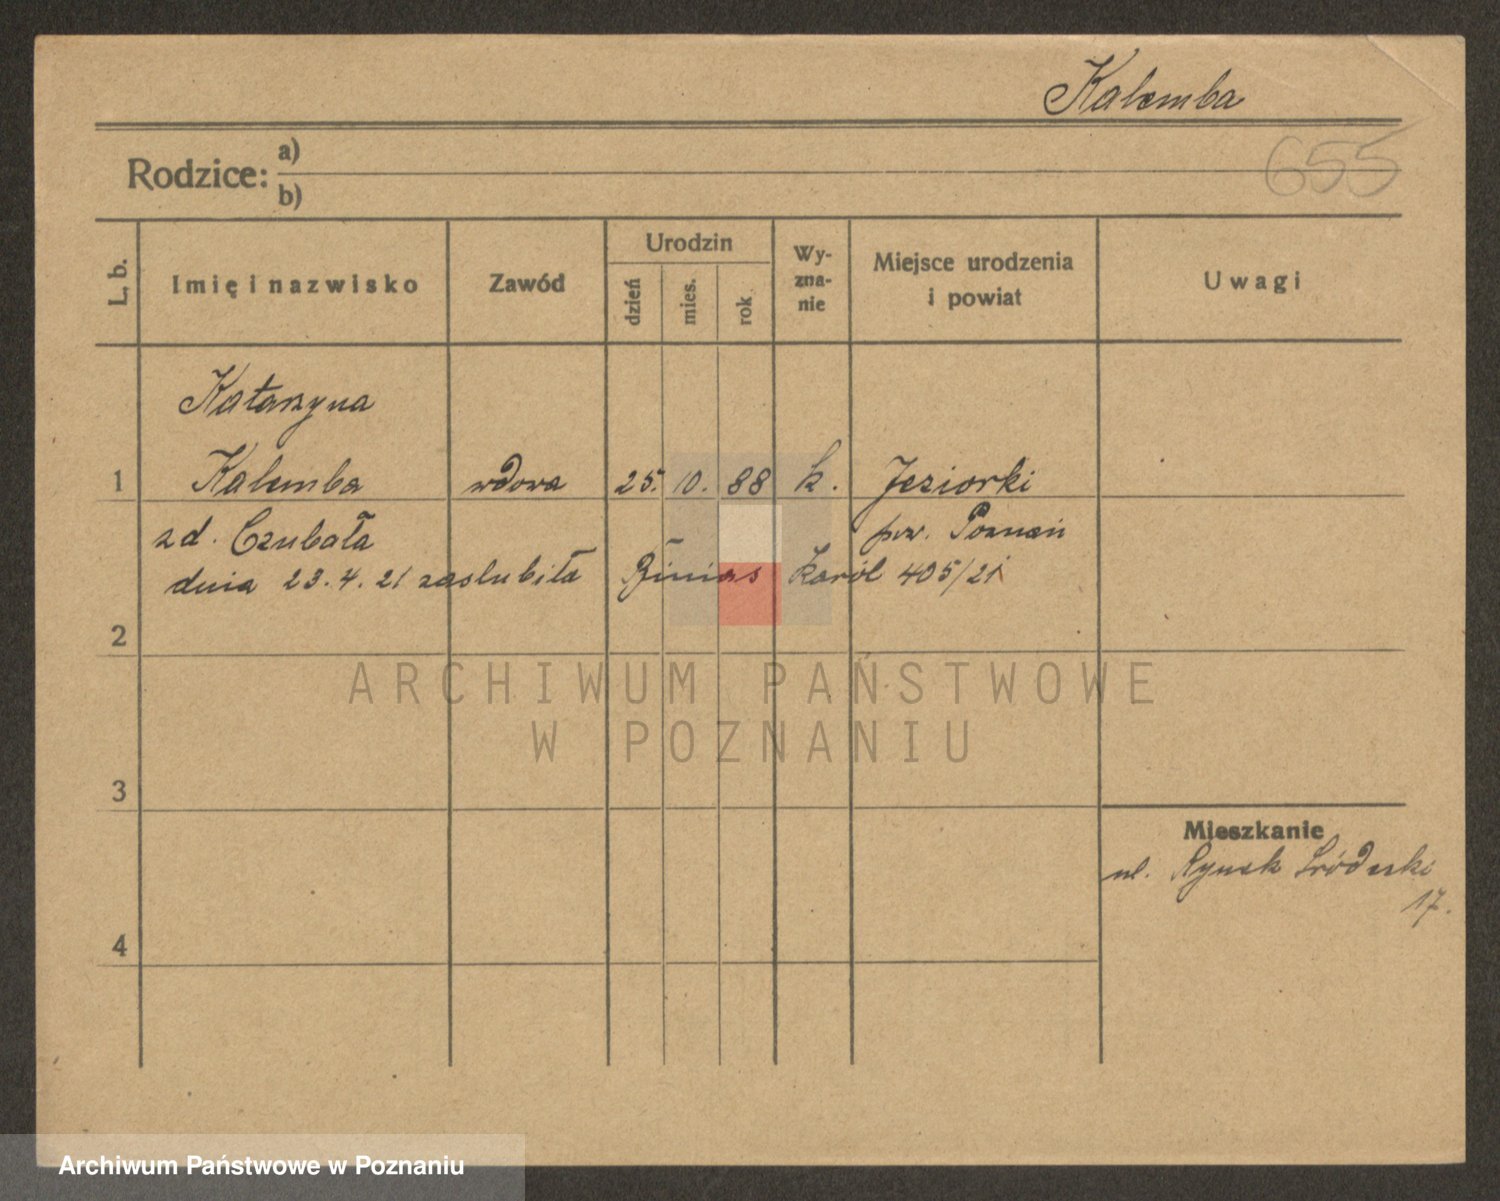 Kalemba
655
Rodzice: a)
b)
L. b. Imię i nazwisko Zawód Urodzin dzień mies. rok Wy-zna-nie Miejsce urodzenia i powiat Uwagi
Katarzyna
1 Kalemba wdowa 25. 10. 88 k. Jeziorki
zd. Czubała pow. Poznań
dnia 23.4.21 zaslubiła Binias Karól 405/21
2
ARCHIWUM PAŃSTWOWE
W POZNANIU
3
Mieszkanie
ul. Rynek Śródecki
17.
4
Archiwum Państwowe w Poznaniu